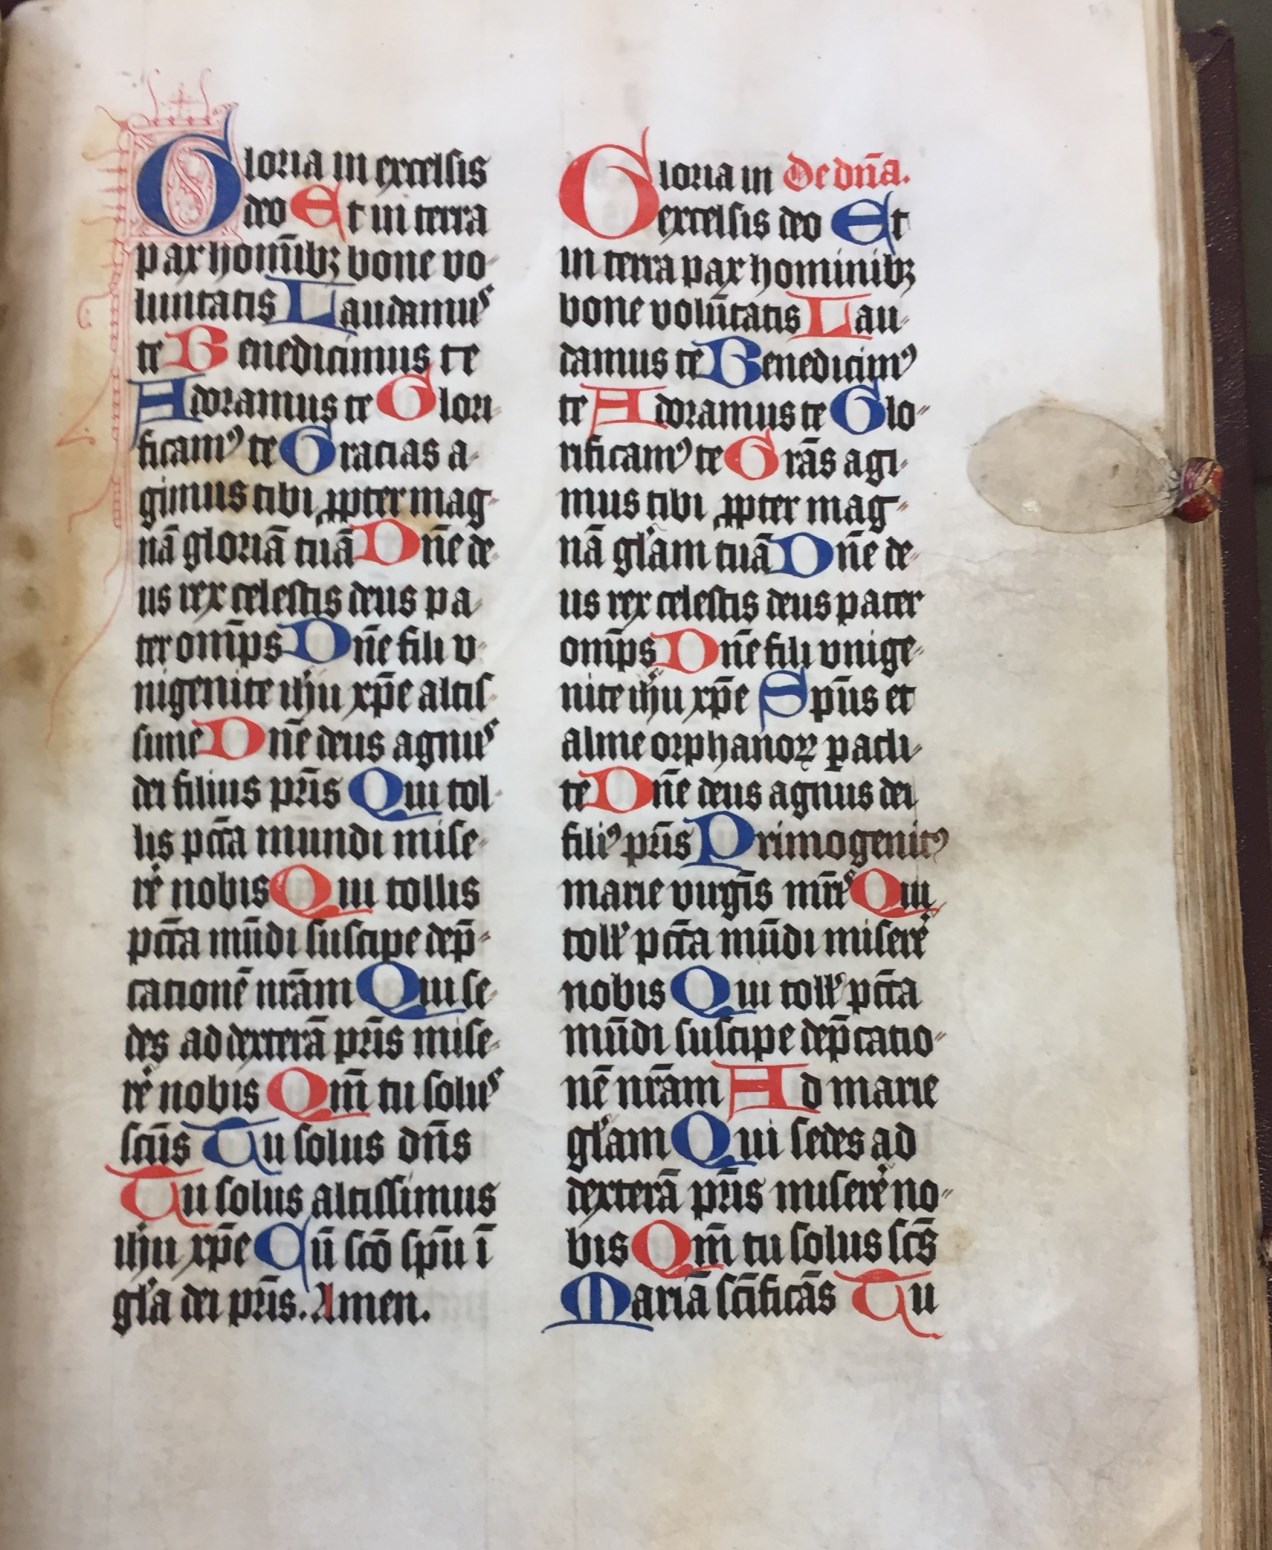 Gloria in excelsis
deo Et in terra
pax homĩbꝫ bone vo-
luntatis Laudamus
te Benedicimus te
Adoramus te Glori-
ficamꝰ te Gracias a-
gimus tibi ꝓpter mag-
nã gloriã tuã Dñe de-
us rex celestis deus pa-
ter omp̃s Dñe fili v-
nigenite ihu xp̃e altis-
sime Dñe deus agnus
dei filius pr̃is Qui tol-
lis pctã mundi mise-
rẽ nobis Qui tollis
pctã mũdi suscipe dep̃-
cationẽ nrãm Qui se-
des ad dexterã pr̃is mise-
rẽ nobis Qm̃ tu solus
sctũs Tu solus dñs
Tu solus altissimus
ihu xp̃e Cũ scõ spũ ĩ
gl'a dei pr̃is. Amen.
Gloria in De dña.
excelsis deo Et
in terra pax hominibꝫ
bone volũtatis Lau-
damus te Benedicimꝰ
te Adoramus te Glo-
rificamꝰ te Grãs agi-
mus tibi ꝓpter mag-
nã gl'am tuã Dñe de-
us rex celestis deus pater
omp̃s Dñe fili vnige-
nite ihu xp̃e Spũs et
alme orphanoꝝ ꝑacli-
te Dñe deus agnus dei
filiꝰ pr̃is Primogenitꝰ
marie virgĩs mr̃is Qui
toll' pctã mũdi miserẽ
nobis Qui toll' pctã
mũdi suscipe dep̃catio-
nẽ nrãm Ad marie
gl'am Qui sedes ad
dexterã pr̃is miserẽ no-
bis Qm̃ tu solus scs̃
Mariã sctĩficãs Tu